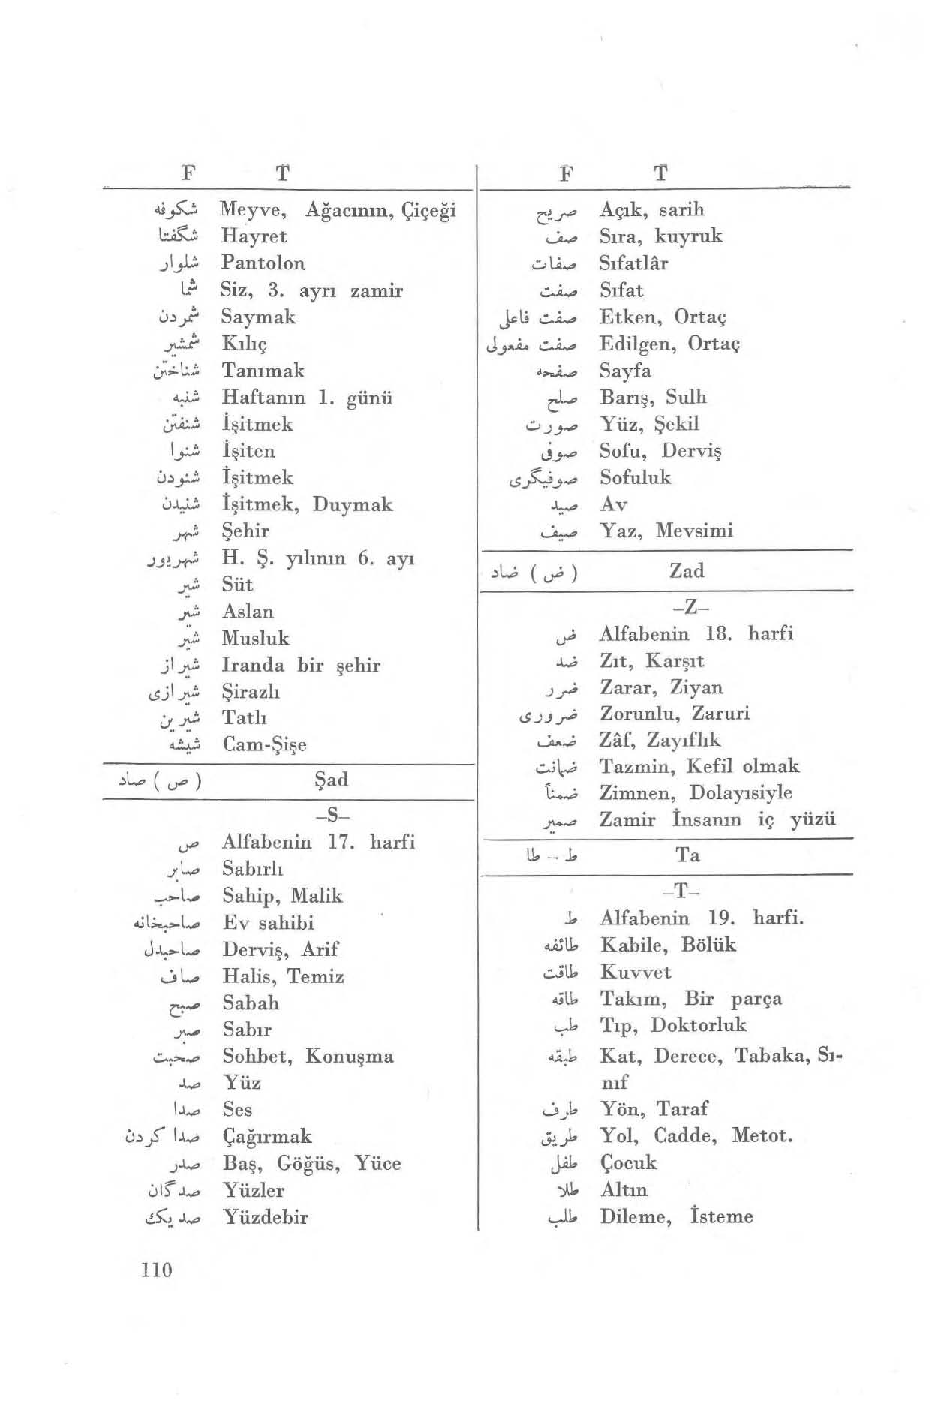 F T
شکوفه Meyve, Ağacının, Çiçeği
شگفتا Hayret
شلوار Pantolon
شما Siz, 3. ayrı zamir
شمردن Saymak
شمشیر Kılıç
شناختن Tanımak
شنبه Haftanın 1. günü
شنفتن İşitmek
شنوا İşiten
شنودن İşitmek
شنیدن İşitmek, Duymak
شهر Şehir
شهریور H. Ş. yılının 6. ayı
شیر Süt
شیر Aslan
شیر Musluk
شیراز Iranda bir şehir
شیرازی Şirazlı
شیرین Tatlı
شیشه Cam-Şişe
( ص ) صاد Şad
–S–
ص Alfabenin 17. harfi
صابر Sabırlı
صاحب Sahip, Malik
صاحبخانه Ev sahibi
صاحبدل Derviş, Arif
صاف Halis, Temiz
صبح Sabah
صبر Sabır
صحبت Sohbet, Konuşma
صد Yüz
صدا Ses
صدا کردن Çağırmak
صدر Baş, Göğüs, Yüce
صدگان Yüzler
صد یک Yüzdebir
F T
صریح Açık, sarih
صف Sıra, kuyruk
صفات Sıfatlâr
صفت Sıfat
صفت فاعلی Etken, Ortaç
صفت مفعولی Edilgen, Ortaç
صفحه Sayfa
صلح Barış, Sulh
صورت Yüz, Şekil
صوفی Sofu, Derviş
صوفیگری Sofuluk
صید Av
صیف Yaz, Mevsimi
( ض ) ضاد Zad
–Z–
ض Alfabenin 18. harfi
ضد Zıt, Karşıt
ضرر Zarar, Ziyan
ضروری Zorunlu, Zaruri
ضعف Zâf, Zayıflık
ضمانت Tazmin, Kefil olmak
ضمناً Zimnen, Dolayısiyle
ضمیر Zamir İnsanın iç yüzü
ط - طا Ta
–T–
ط Alfabenin 19. harfi.
طائفه Kabile, Bölük
طاقت Kuvvet
طاقه Takım, Bir parça
طب Tıp, Doktorluk
طبقه Kat, Derece, Tabaka, Sı-
nıf
طرف Yön, Taraf
طریق Yol, Cadde, Metot.
طفل Çocuk
طلا Altın
طلب Dileme, İsteme
110